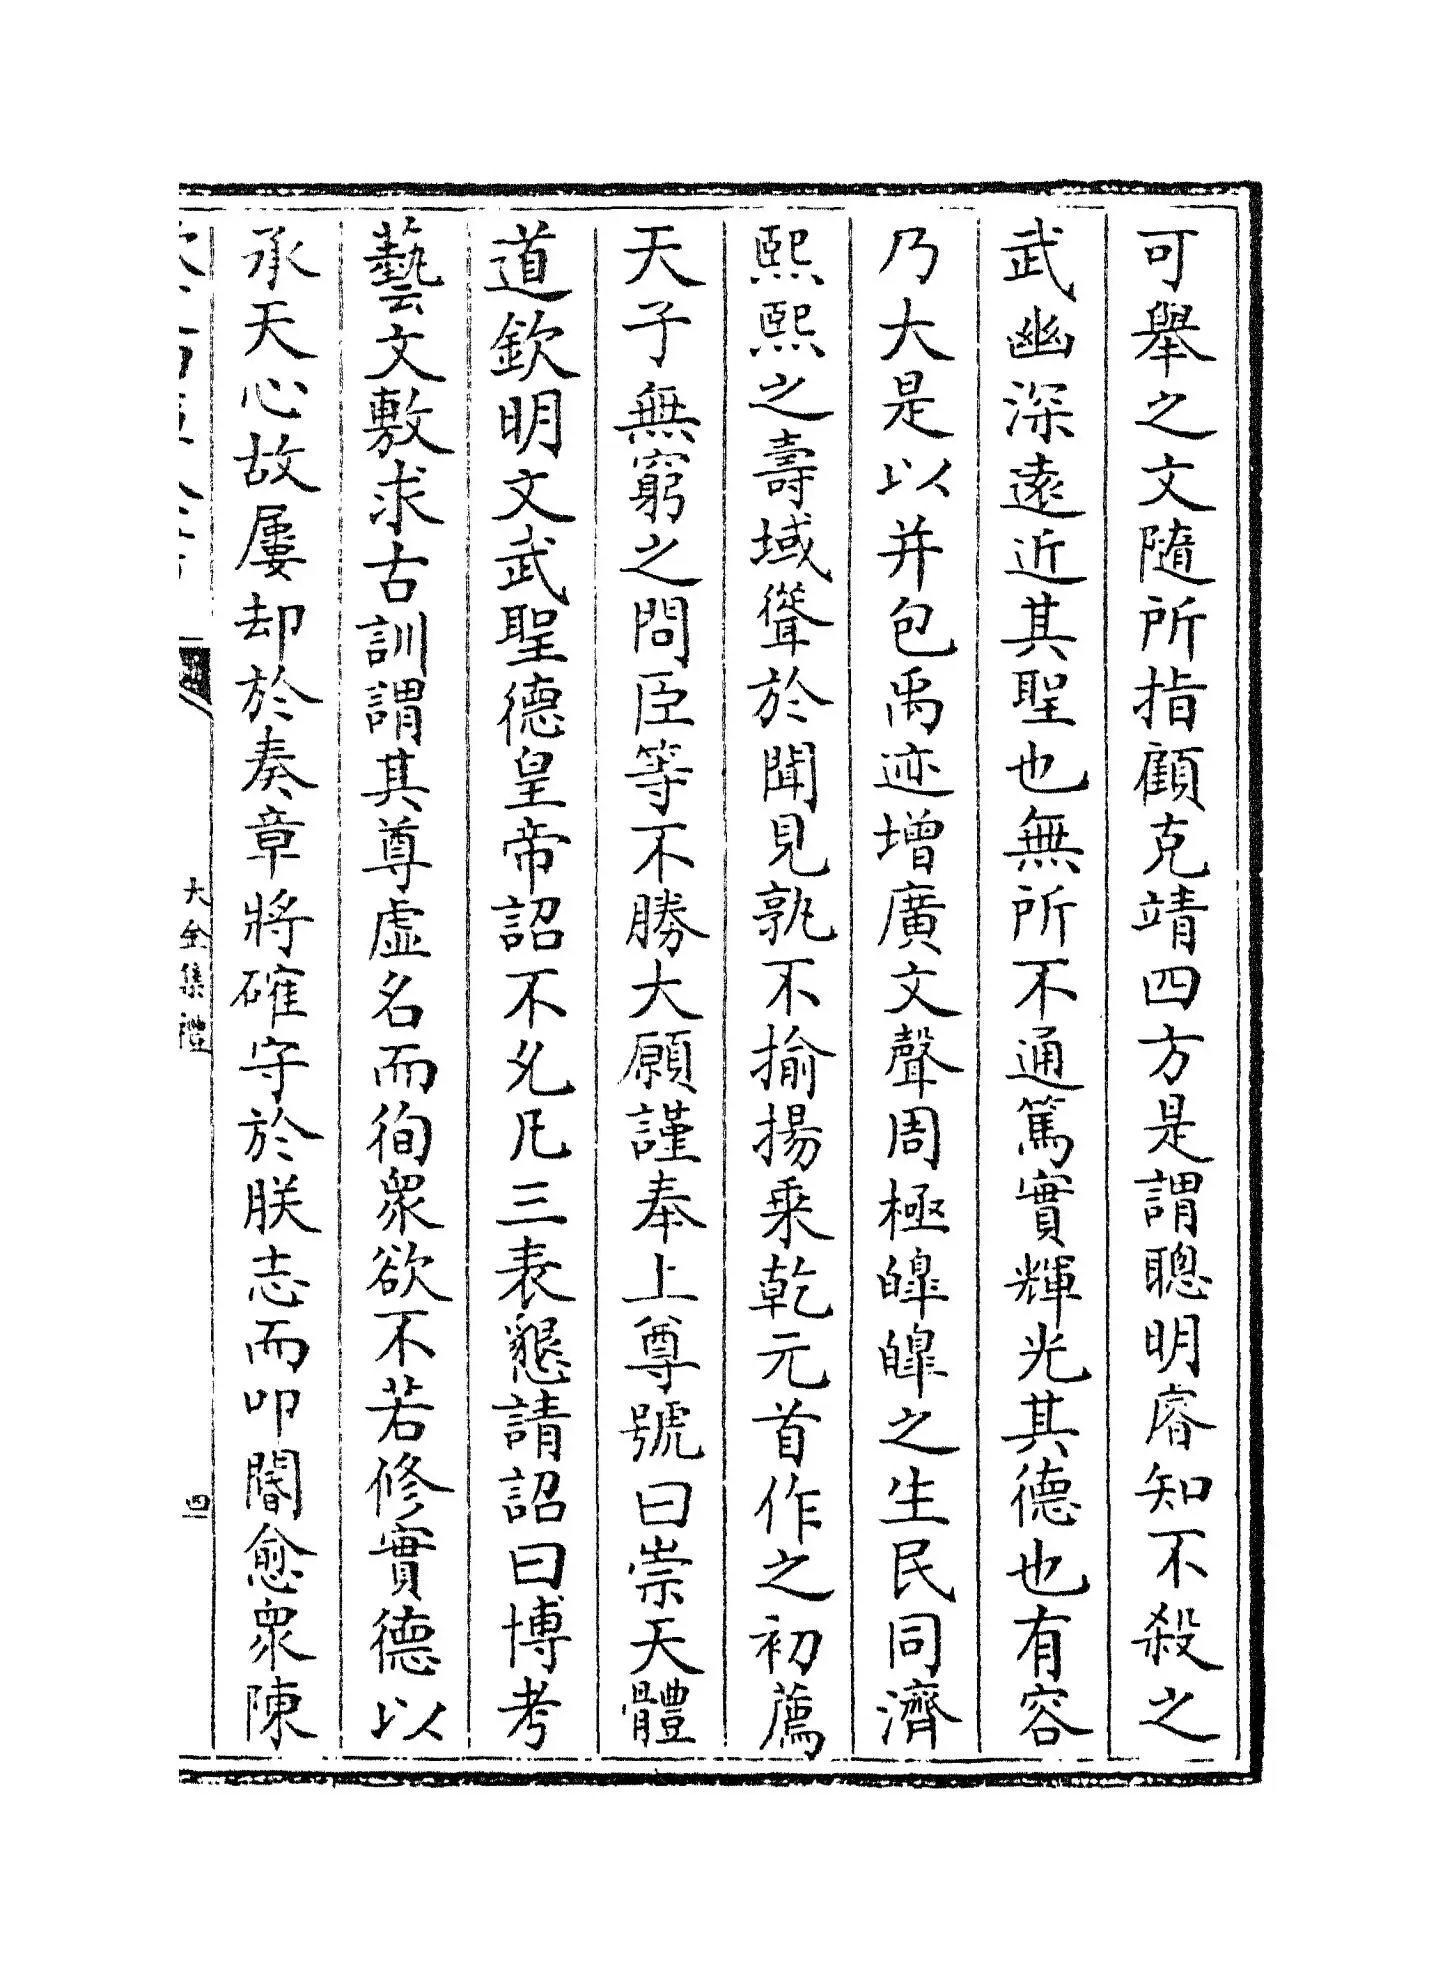 可舉之文隨所指顧克靖四方是謂聰明睿知不殺之
武幽深遠近其聖也無所不通篤實輝光其德也有容
乃大是以并包禹迹增廣文聲周極皥皥之生民同濟
熙熙之壽域聳於聞見孰不揄揚乗乾元首作之初薦
天子無窮之問臣等不勝大願謹奉上尊號曰崇天體
道欽明文武聖德皇帝詔不允凡三表懇請詔曰博考
藝文敷求古訓謂其尊虛名而徇衆欲不若修實德以
承天心故屢却於奏章將確守於朕志而叩閽愈衆陳
大金集禮
四